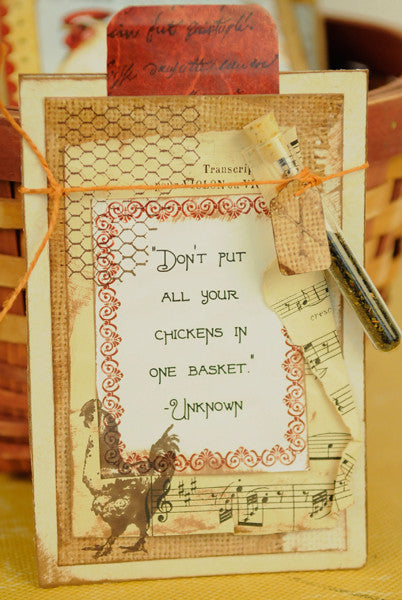 Transcrip
"Don't put
all your
chickens in
one basket."
-Unknown